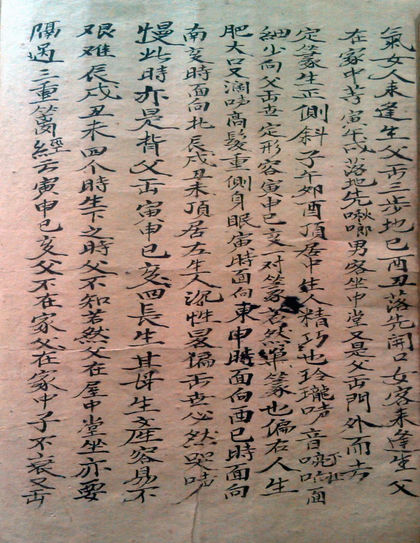 氣女人未逢生父去三步地巳酉丑落先開口女客未逢生父
在家中等寅午戌落地先啾唧男客坐中堂又是父去門外而去
定篆生正側斜子午卯酉頂居中生人精巧也玲瓏啼音嘹喨面
細小向父去查定形容寅申巳亥対坐篆若然單篆也偏右人生
肥大口又濶啼高髮重側身眠寅時面向東申時面向西巳時面向
南亥時面向北辰戌丑未頂居左生人沉性晷偏去查必然哭啼
慢此時亦是背父去寅申巳亥四長生其母生產容易不
艰难辰戌丑未四个時生下之時父不知若然父在屋中堂坐亦要
隔過三重篱經云寅申巳亥父不在家父在家中子不哀又去